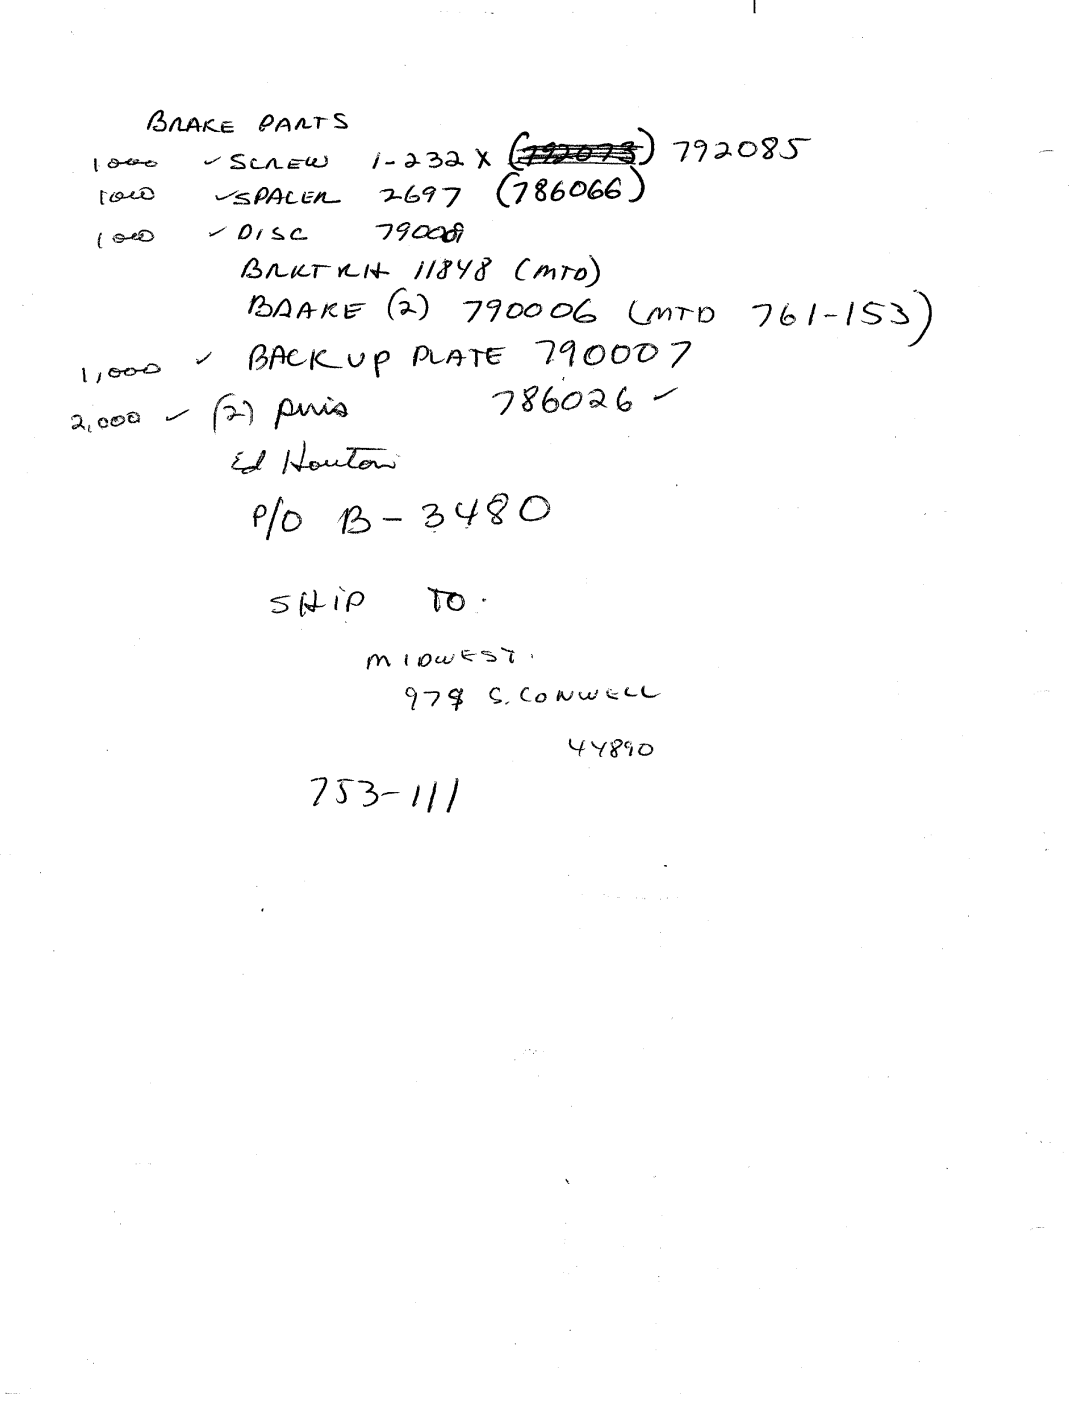 BRAKE PARTS
1000 ✓ SCREW 1-232 X (792073) 792085
1000 ✓ SPACER 2697 (786066)
1000 ✓ DISC
BRKT RH 11848 (MTD)
BRAKE (2) 790006 (MTD 761-153)
1,000 ✓ BACK UP PLATE 790007
2,000 ✓ (2) pins 786026 ✓
Ed Houton
P/O B-3480
SHIP TO.
MIDWEST.
S. CONWELL
44890
753-111